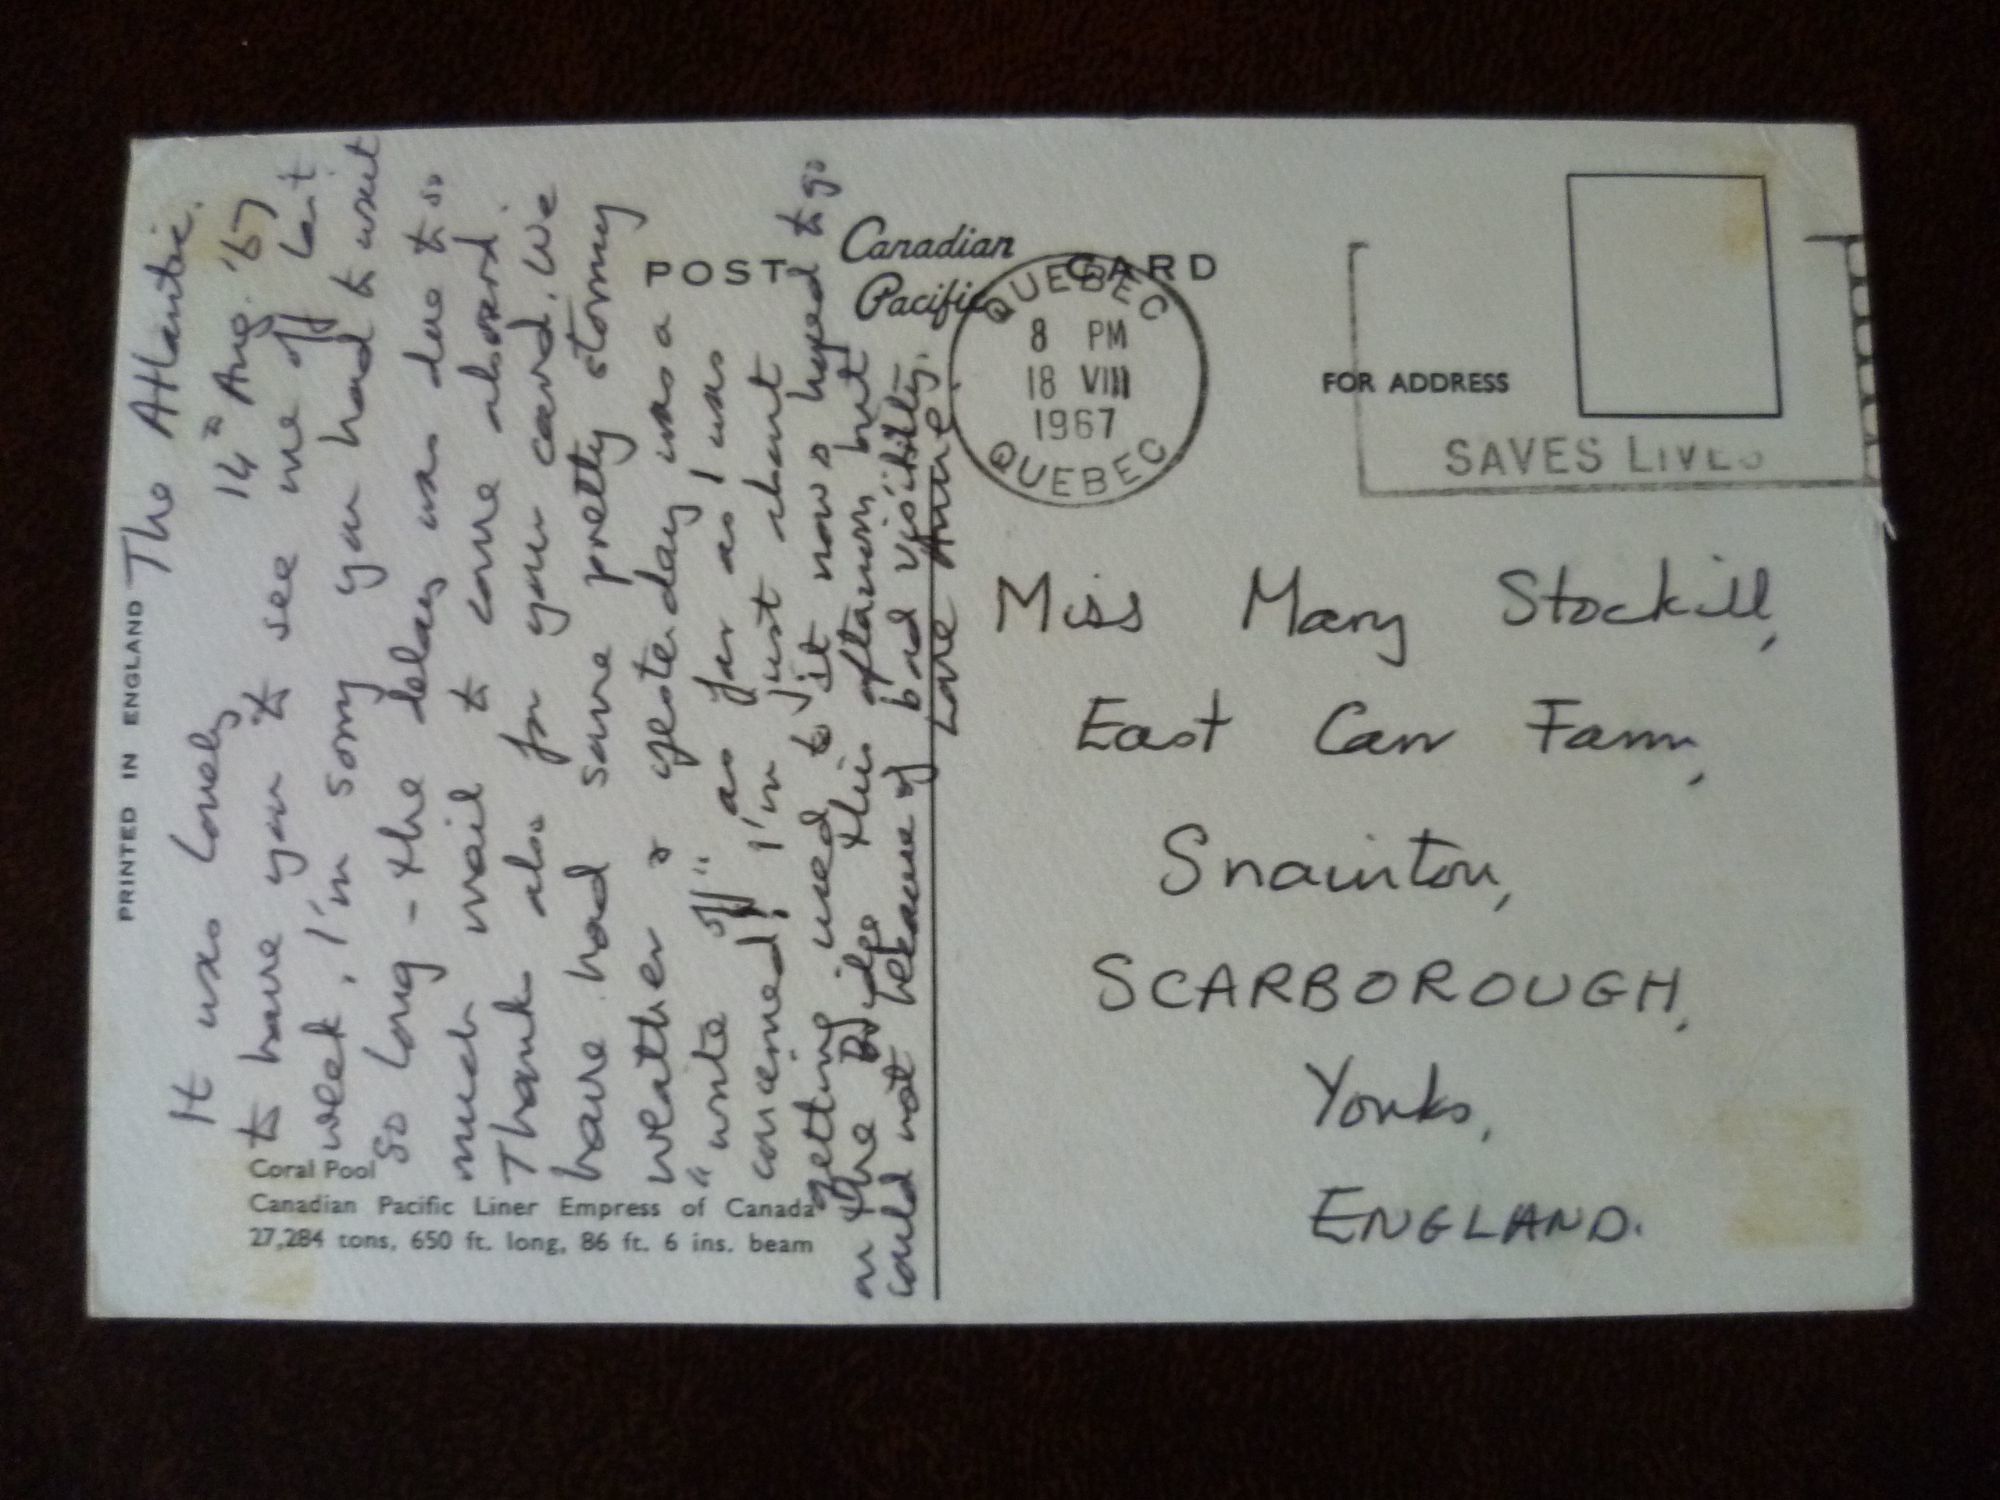 PRINTED IN ENGLAND
The Atlantic.
14th Aug. '67
It was lovely
to have you to see me off last
week, I'm sorry you had to wait
so long - the delay was due to so
much mail to come aboard.
Thank also for your card. We
have had some pretty stormy
weather & yesterday was a
"write off" as far as I was
concerned! I'm just about
getting used to it now & hoped to go
on the Bridge this afternoon but
could not because of bad visibility.
Love Anne.
Coral Pool
Canadian Pacific Liner Empress of Canada
27,284 tons, 650 ft. long, 86 ft. 6 ins. beam
POST CARD
Canadian
Pacific
QUEBEC
8 PM
18 VIII
1967
QUEBEC
FOR ADDRESS
SAVES LIVES
Miss Mary Stockill,
East Carr Farm,
Snainton,
SCARBOROUGH,
Yorks,
ENGLAND.